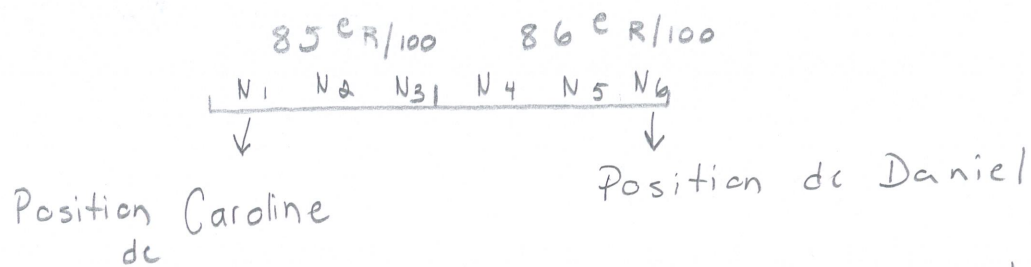 85 e R/100 86 e R/100
N1 N2 N3 N4 N5 N6
Position Caroline
de
Position de Daniel